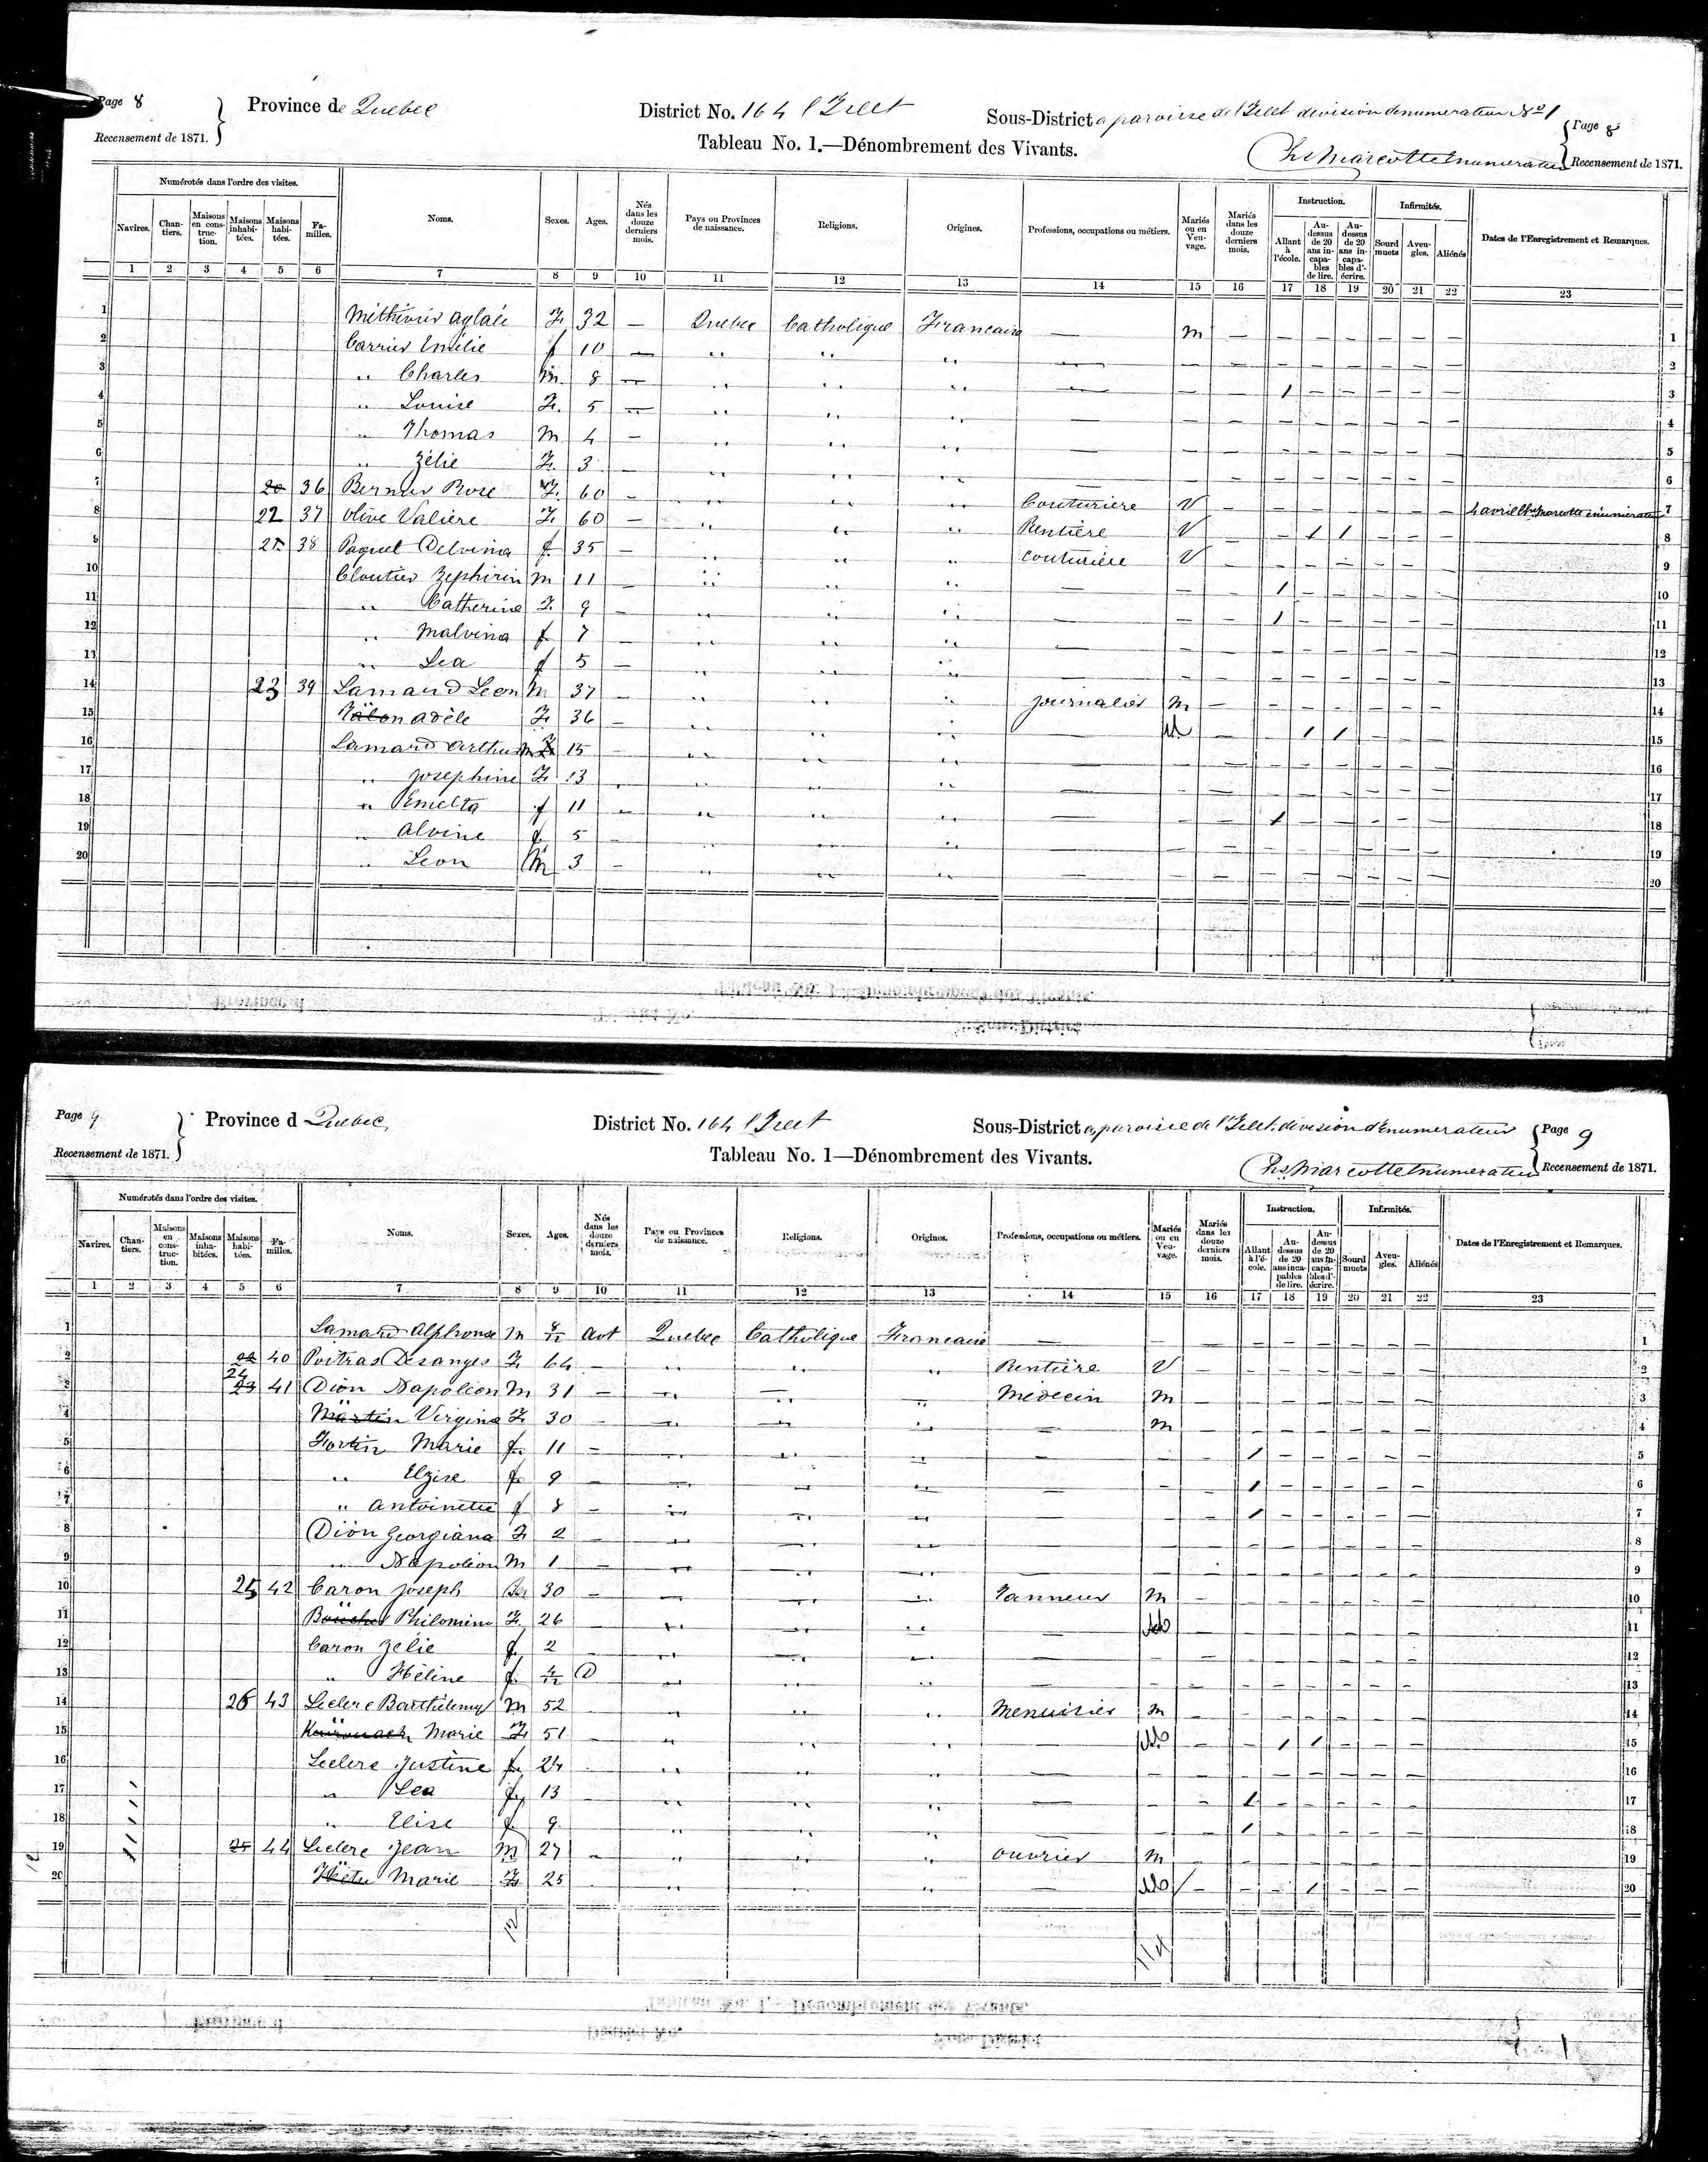 Page 8
Recensement de 1871.
Province de Quebec
District No. 164 l'Islet
Sous-District a paroisse de l'Islet division denumerateur No 1
Page 8
Recensement de 1871.
Tableau No. 1.—Dénombrement des Vivants.
Chs Marcotte Enumerateur
Numérotés dans l'ordre des visites.
Instruction.
Infirmités.
Navires. Chantiers. Maisons en construction. Maisons inhabitées. Maisons habitées. Familles. Noms. Sexes. Ages. Nés dans les douze derniers mois. Pays ou Provinces de naissance. Religions. Origines. Professions, occupations ou métiers. Mariés ou en Veuvage. Mariés dans les douze derniers mois. Allant à l'école. Au-dessus de 20 ans incapables de lire. Au-dessus de 20 ans incapables d'écrire. Sourd muets Aveugles. Aliénés Dates de l'Enregistrement et Remarques.
1 2 3 4 5 6 7 8 9 10 11 12 13 14 15 16 17 18 19 20 21 22 23
1 Méthivier Aglaé F 32 — Quebec Catholique Francaise — m — — — — — — — 1
2 Carrier Emélie f 10 — " " " — — — — — — — — — 2
3 " Charles m. 8 — " " " — — — 1 — — — — — 3
4 " Louise F. 5 — " " " — — — — — — — — — 4
5 " Thomas m 4 — " " " — — — — — — — — — 5
6 " Zélie F. 3 — " " " — — — — — — — — — 6
7 20 36 Bernier Rose F. 60 — " " " Couturiere V — — — — — — — 4 avril Chs Marcotte énumerateur 7
8 22 37 Olive Valiere F. 60 — " " " Rentière V — — 1 1 — — — 8
9 21 38 Paquet Delvina f. 35 — " " " couturière V — — — — — — — 9
10 Cloutier Zephirin m 11 — " " " — — — 1 — — — — — 10
11 " Catherine F. 9 — " " " — — — 1 — — — — — 11
12 " Malvina f 7 — " " " — — — — — — — — — 12
13 " Lea f 5 — " " " — — — — — — — — — 13
14 23 39 Lamard Leon m 37 — " " " journalier m — — — — — — — 14
15 Adèle F 36 — " " " — M — — 1 1 — — — 15
16 Lamard Arthur m 15 — " " " — — — — — — — — — 16
17 " Josephine F 13 — " " " — — — — — — — — — 17
18 " Emelta f 11 — " " " — — — 1 — — — — — 18
19 " Alvine f 5 — " " " — — — — — — — — — 19
20 " Leon M 3 — " " " — — — — — — — — — 20
Page 9
Recensement de 1871.
Province d Quebec,
District No. 164 l'Islet
Sous-District a, paroisse de l'Islet division d'Enumerateur
Page 9
Recensement de 1871.
Tableau No. 1—Dénombrement des Vivants.
Chs Marcotte Enumerateur
Numérotés dans l'ordre des visites.
Instruction.
Infirmités.
Navires. Chantiers. Maisons en construction. Maisons inhabitées. Maisons habitées. Familles. Noms. Sexes. Ages. Nés dans les douze derniers mois. Pays ou Provinces de naissance. Religions. Origines. Professions, occupations ou métiers. Mariés ou en Veuvage. Mariés dans les douze derniers mois. Allant à l'école. Au-dessus de 20 ans incapables de lire. Au-dessus de 20 ans incapables d'écrire. Sourd muets Aveugles. Aliénés Dates de l'Enregistrement et Remarques.
1 2 3 4 5 6 7 8 9 10 11 12 13 14 15 16 17 18 19 20 21 22 23
1 Lamard Alphonse m 8/12 Aot Quebec Catholique Francaise — — — — — — — — — 1
2 22 40 Poitras Desanges F 64 — " " " Rentière V — — — — — — — 2
3 24 23 41 Dion Napoleon m 31 — " " " Médecin m — — — — — — — 3
4 Martin Virginie F 30 — " " " — m — — — — — — — 4
5 Fortin Marie f 11 — " " " — — — 1 — — — — — 5
6 " Elzire f 9 — " " " — — — 1 — — — — — 6
7 " Antoinette f 8 — " " " — — — 1 — — — — — 7
8 Dion Georgiana F 2 — " " " — — — — — — — — — 8
9 " Napoleon m 1 — " " " — — — — — — — — — 9
10 25 42 Caron Joseph m 30 — " " " Tanneur m — — — — — — — 10
11 Boucher Philomène F 26 — " " " — M — — — — — — — 11
12 Caron Zélie f 2 — " " " — — — — — — — — — 12
13 " Héline f 4/12 D " " " — — — — — — — — — 13
14 26 43 Leclerc Barthélemy m 52 — " " " Menuisier m — — — — — — — 14
15 Marie F 51 — " " " — M — — 1 1 — — — 15
16 Leclerc Justine f 24 — " " " — — — — — — — — — 16
17 " Lea f 13 " " " — — — 1 — — — — — 17
18 " Elise f 9 " " " — — — 1 — — — — — 18
19 25 44 Leclerc Jean m 27 — " " " ouvrier m — — — — — — — 19
20 Hetu Marie F 25 " " " — M — — 1 — — — — 20